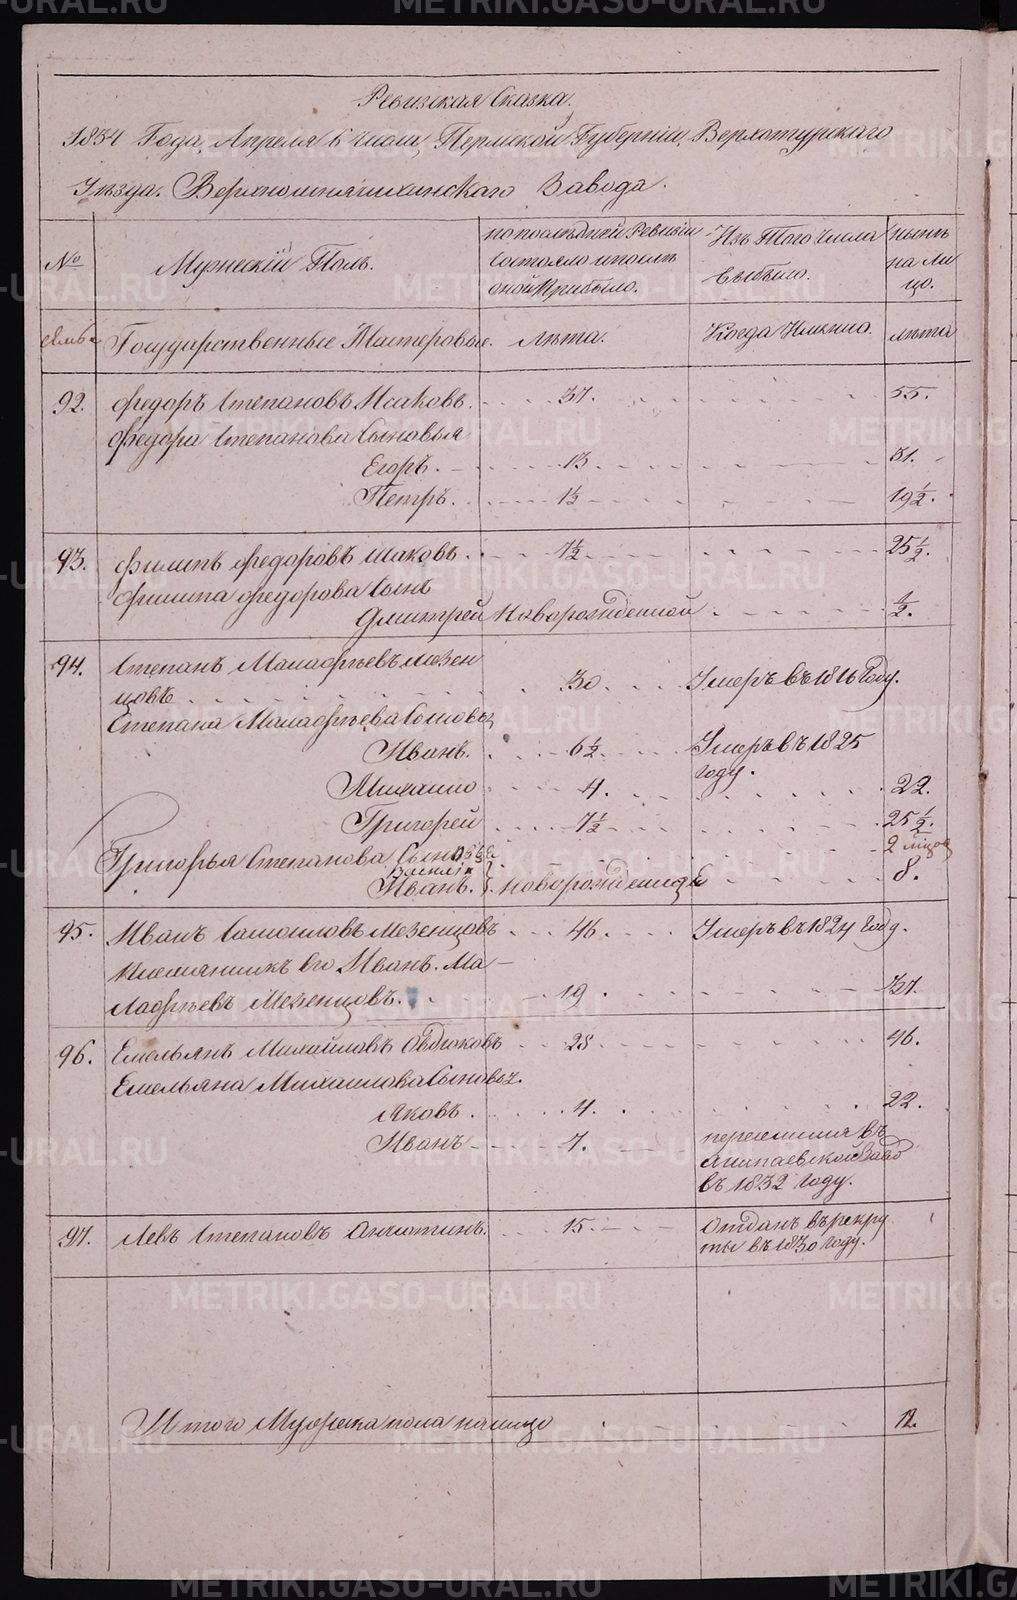 Ревизская Сказка.
1834 Года, Апреля 6 Числа, Пермской Губернии, Верхотурскаго
Уезда. Верхнесинячихинскаго Завода.
№
Мужескій Полъ.
по последней Ревизіи
состояло и после
оной Прибыло.
Изъ Того Числа
выбыло.
ныне
на ли
цо.
Государственные Мастеровые.
Лета.
Когда Именно.
лета
92. Федоръ Степановъ Исаковъ. 37. 55.
Федора Степанова Сыновья
Егоръ. 13 31.
Петръ. 1½ 19½.
93. Филипъ Федоровъ Исаковъ. 7½ 25½.
Филипа Федорова Сынъ
Дмитрей Новорожденной ½.
94. Степанъ Малафеевъ Мезен
цовъ 30 Умеръ въ 1816 Году.
Степана Малафеева Сыновья
Иванъ. 6½ Умеръ въ 1825
году.
Михаило 4. 22.
Григорей 7½ 25½.
Григорья Степанова Сыновья
Василій 2 мцов
Иванъ. новорожденные 8.
95. Иванъ Самоиловъ Мезенцовъ 46 Умеръ въ 1824 году.
племянникъ его Иванъ. Ма-
лафеевъ Мезенцовъ. 19 37.
96. Емельянъ Михайловъ Овдюковъ 28 46.
Емельяна Михаилова Сыновья.
Яковъ. 4. 22.
Иванъ 7. переселился въ
Алапаевской Завод
въ 1832 году.
97. Левъ Степановъ 15. Отданъ въ рекру
ты въ 1830 году.
Итого Мужеска пола налицо 12.
METRIKI.GASO-URAL.RU